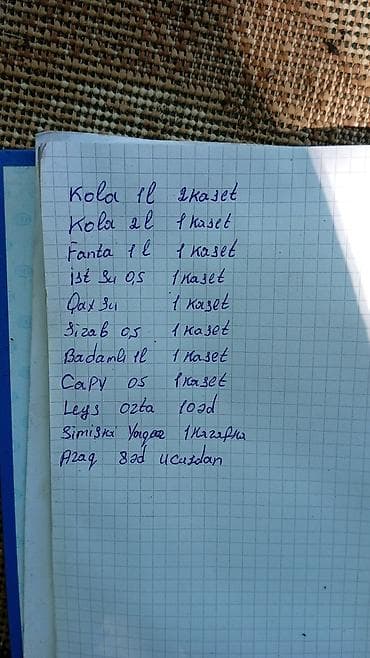 Kola 1l 2kaset
Kola 2l 1 kaset
Fanta 1l 1 kaset
ist su 0,5 1kaset
Qax su 1 kaset
Sirab 0,5 1 kaset
Badamlı 1l 1 kaset
Capy 05 1kaset
Leys orta 10əd
Simişka
Araq 8əd ucuzdan